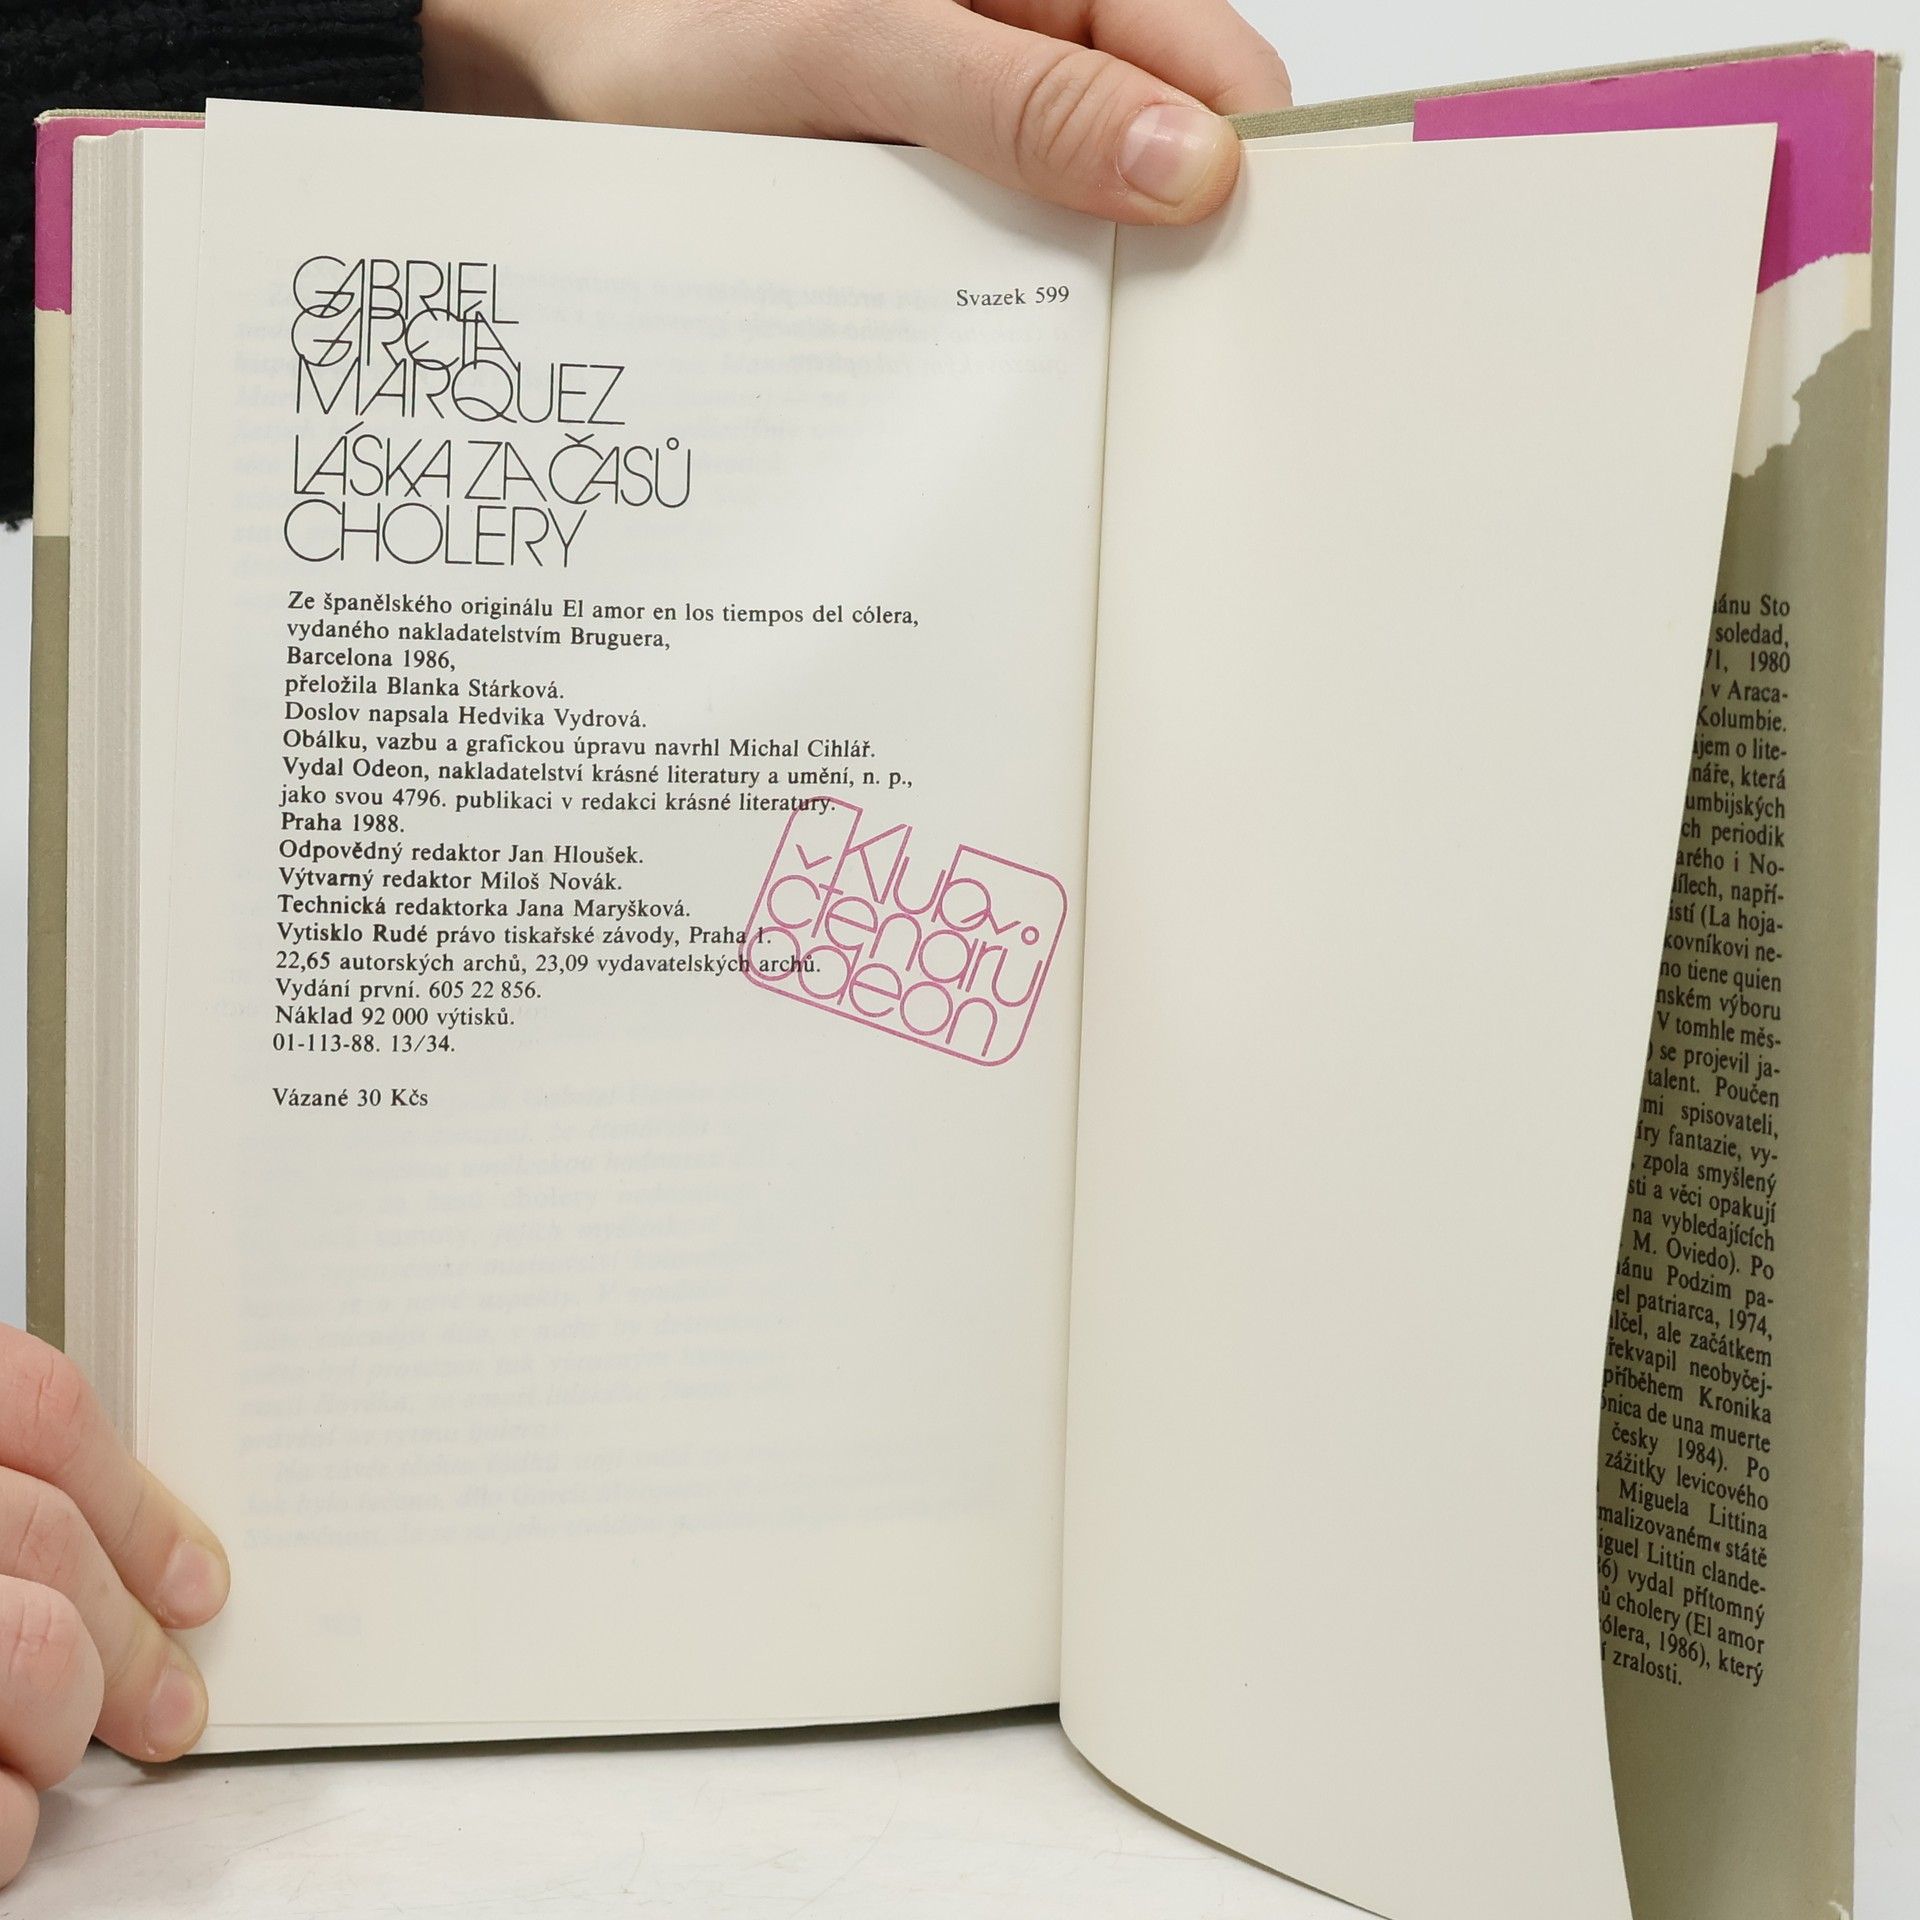 GABRIEL
GARCÍA
MÁRQUEZ
LÁSKA ZA ČASŮ
CHOLERY
Svazek 599
Ze španělského originálu El amor en los tiempos del cólera,
vydaného nakladatelstvím Bruguera,
Barcelona 1986,
přeložila Blanka Stárková.
Doslov napsala Hedvika Vydrová.
Obálku, vazbu a grafickou úpravu navrhl Michal Cihlář.
Vydal Odeon, nakladatelství krásné literatury a umění, n. p.,
jako svou 4796. publikaci v redakci krásné literatury.
Praha 1988.
Odpovědný redaktor Jan Hloušek.
Výtvarný redaktor Miloš Novák.
Technická redaktorka Jana Maryšková.
Vytisklo Rudé právo tiskařské závody, Praha 1.
22,65 autorských archů, 23,09 vydavatelských archů.
Vydání první. 605 22 856.
Náklad 92 000 výtisků.
01-113-88. 13/34.
Vázané 30 Kčs
Klub
čtenářů
odeon
Sto
soledad,
1980
v Araca-
Kolumbie.
o lite-
která
periodik
i No-
napří-
(La hoja-
ne-
no tiene quien
výboru
V tomhle měs-
se projevil ja-
talent. Poučen
spisovateli,
fantazie, vy-
zpola smyšlený
a věci opakují
na vybledajících
M. Oviedo). Po
Podzim pa-
patriarca, 1974,
ale začátkem
neobyčej-
příběhem Kronika
de una muerte
česky 1984). Po
zážitky levicového
Miguela Littina
státě
Littin clande-
vydal přítomný
cholery (El amor
1986), který
zralosti.